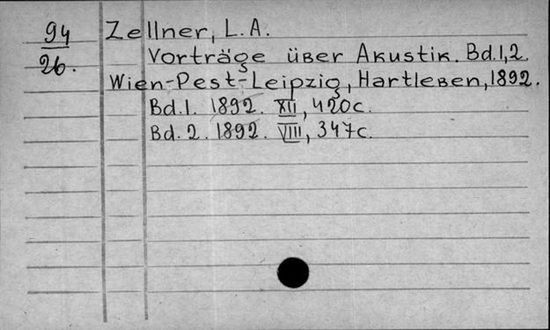 94 Zellner, L.A.
26. Vorträge über Akustik. Bd.1,2.
Wien-Pest-Leipzig, Hartleben, 1892.
Bd.1. 1892. XII, 420c.
Bd.2. 1892. VIII, 347c.